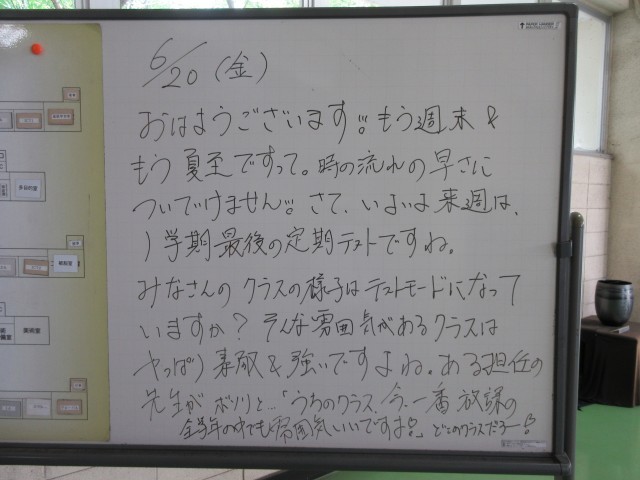 6/20（金）
おはようございます!! もう週末 &
もう夏至ですって。時の流れの早さに
ついていけません!! さて、いよいよ来週は、
1学期最後の定期テストですね。
みなさんのクラスの様子はテストモードになって
いますか？ そんな雰囲気があるクラスは
やっぱり素敵 & 強いですよね。ある担任の
先生がボソリと…「うちのクラス、今、一番放課の
全学年の中でも雰囲気いいですよ!」どこのクラスだろー?
美術室